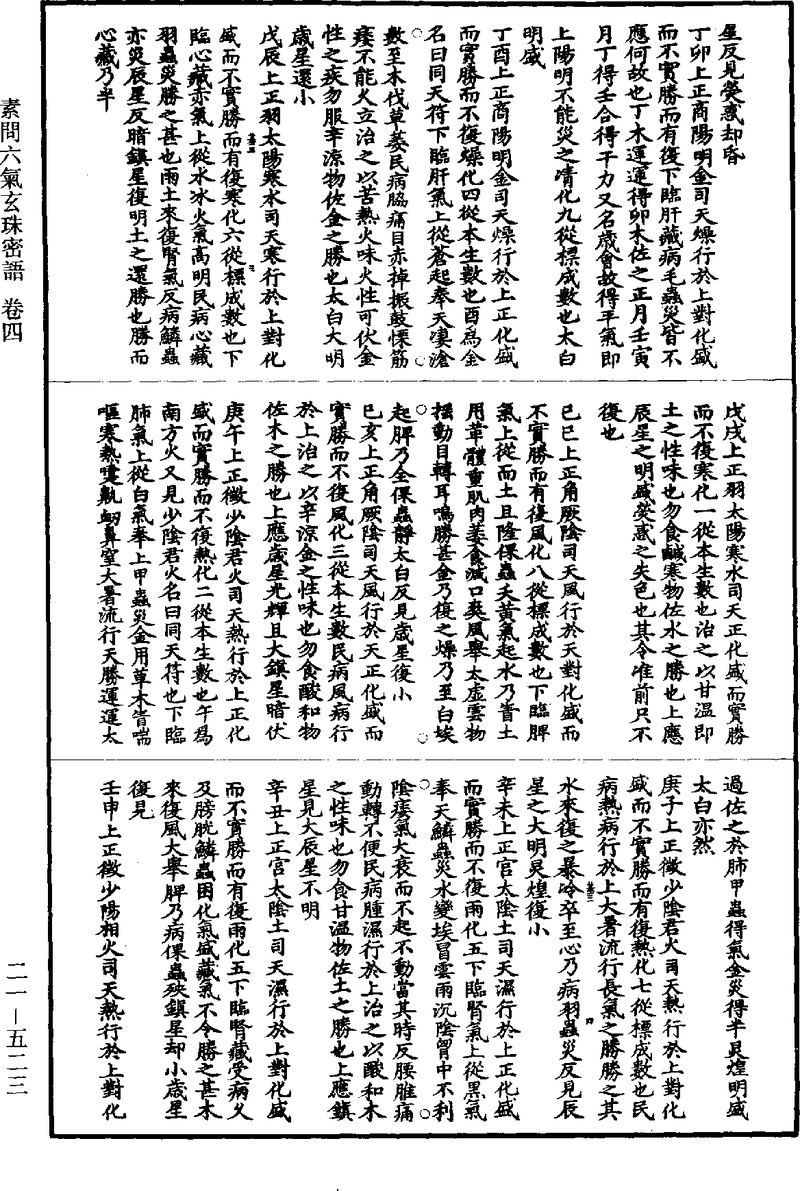 星反見熒惑却昏
丁卯上正商陽明金司天燥行於上對化盛
而不實勝而有復下臨肝藏病毛蟲災皆不
應何故也丁木運運得卯木佐之正月壬寅
月丁得壬合得干力又名歲會故得平氣即
上陽明不能災之清化九從標成數也太白
明盛
丁酉上正商陽明金司天燥行於上正化盛
而實勝而不復燥化四從本生數也酉為金
名曰同天符下臨肝氣上從蒼起奉天凄滄
數至木伐草萎民病脇痛目赤掉振鼓慄筋
痿不能久立治之以苦熱火味火性可伏金
性之疾勿服辛涼物佐金之勝也太白大明
歲星還小
戊辰上正羽太陽寒本司天寒行於上對化
盛而不實勝而有復寒化六從標成數也下
臨心藏赤氣上從水冰火氣高明民病心藏
羽蟲災勝之甚也雨土來復腎氣反病鱗蟲
亦災辰星反暗鎮星復明土之還勝也勝而
心藏乃半
戊戌上正羽太陽寒水司天正化盛而實勝
而不復寒化一從本生數也治之以甘溫即
土之性味也勿食鹹寒物佐水之勝也上應
辰星之明盛熒惑之失色也其令准前只不
復也
己巳上正角厥陰司天風行於天對化盛而
不實勝而有復風化八從標成數也下臨脾
氣上從而土且隆倮蟲夭黃氣起水乃眚土
用革體重肌肉萎食減口爽風舉太虛雲物
搖動目轉耳鳴勝甚金乃復之燥乃至白埃
起脾乃全倮蟲靜太白反見歲星復小
己亥上正角厥陰司天風行於天正化盛而
實勝而不復風化三從本生數民病風病行
於上治之以辛涼金之性味也勿食酸和物
佐木之勝也上應歲星光輝且大鎮星暗伏
庚午上正徵少陰君火司天熱行於上正化
盛而實勝而不復熱化二從本生數也午為
南方火又見少陰君火名曰同天符也下臨
肺氣上從白氣奉上甲蟲災金用草木眚喘
嘔寒熱嚏鼽衄鼻窒大暑流行天勝運運太
過佐之於肺甲蟲得氣金災得半炅煌明盛
太白亦然
庚子上正徵少陰君火司天熱行於上對化
盛而不實勝而有復熱化七從標成數也民
病熱病行於上大暑流行長氣之勝勝之其
水來復之暴冷卒至心乃病羽蟲災反見辰
星之大明炅煌復小
辛未上正宮太陰土司天濕行於上正化盛
而實勝而不復雨化五下臨腎氣上從黑氣
奉天鱗蟲災水變埃冒雲雨沉陰胃中不利
陰痿氣大衰而不起不動當其時反腰脽痛
動轉不便民病腫濕行於上治之以酸和木
之性味也勿食甘溫物佐土之勝也上應鎮
星見大辰星不明
辛丑上正宮太陰土司天濕行於上對化盛
而不實勝而有復雨化五下臨腎藏受病火
及膀胱鱗蟲困化氣盛藏氣不令勝之甚木
來復風大舉脾乃病倮蟲殃鎮星却小歲星
復見
壬申上正徵少陽相火司天熱行於上對化
素問六氣玄珠密語 卷四
二一—五二三